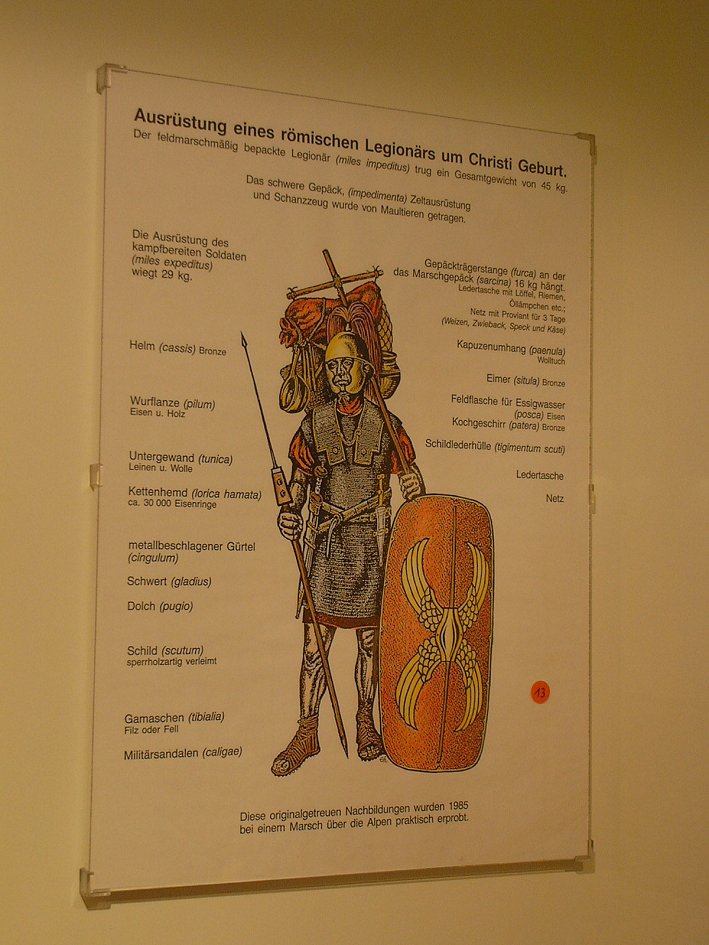 Ausrüstung eines römischen Legionärs um Christi Geburt.
Der feldmarschmäßig bepackte Legionär (miles impeditus) trug ein Gesamtgewicht von 45 kg.
Das schwere Gepäck, (impedimenta) Zeltausrüstung
und Schanzzeug wurde von Maultieren getragen.
Die Ausrüstung des
kampfbereiten Soldaten
(miles expeditus)
wiegt 29 kg.
Helm (cassis) Bronze
Wurflanze (pilum)
Eisen u. Holz
Untergewand (tunica)
Leinen u. Wolle
Kettenhemd (lorica hamata)
ca. 30 000 Eisenringe
metallbeschlagener Gürtel
(cingulum)
Schwert (gladius)
Dolch (pugio)
Schild (scutum)
sperrholzartig verleimt
Gamaschen (tibialia)
Filz oder Fell
Militärsandalen (caligae)
Gepäckträgerstange (furca) an der
das Marschgepäck (sarcina) 16 kg hängt.
Ledertasche mit Löffel, Riemen,
Öllämpchen etc.;
Netz mit Proviant für 3 Tage
(Weizen, Zwieback, Speck und Käse)
Kapuzenumhang (paenula)
Wolltuch
Eimer (situla) Bronze
Feldflasche für Essigwasser
(posca) Eisen
Kochgeschirr (patera) Bronze
Schildlederhülle (tigimentum scuti)
Ledertasche
Netz
13
Diese originalgetreuen Nachbildungen wurden 1985
bei einem Marsch über die Alpen praktisch erprobt.